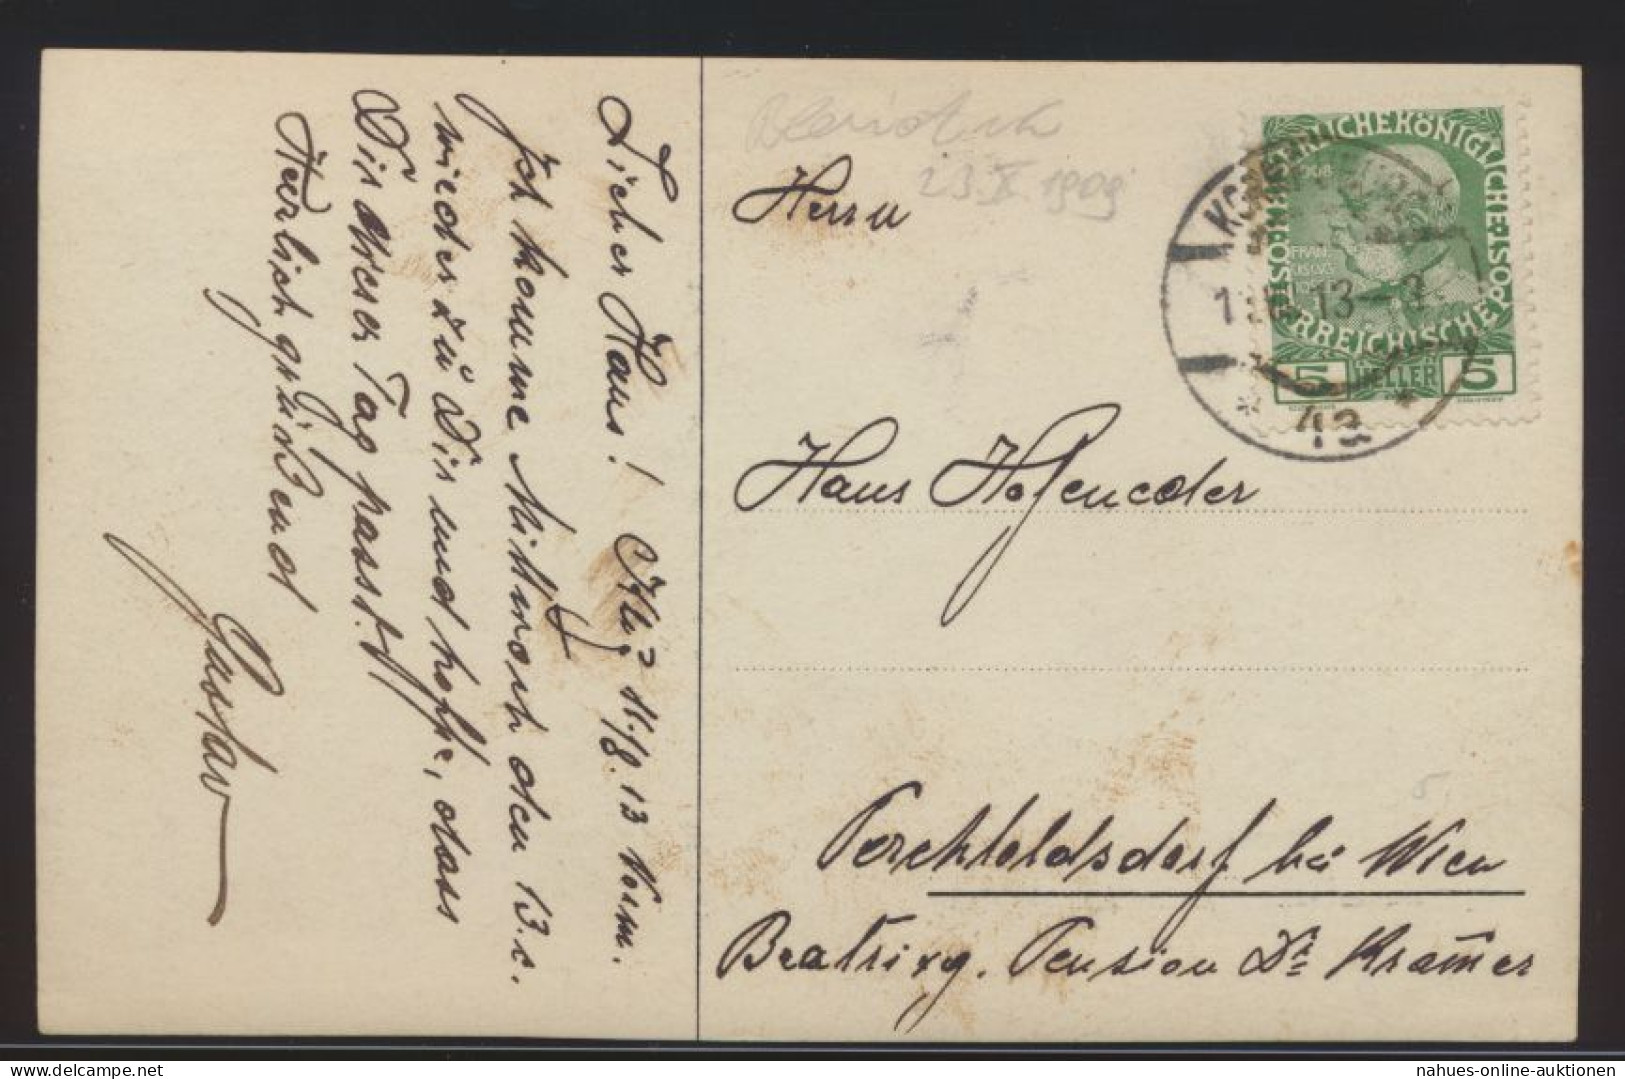 Lieber Hans! Kbg, 11./8. 13 Vorm.
Ich komme Mittwoch den 13. c.
wieder zu Dir und hoffe, dass
Dir dieser Tag passt.
Herzlich grüßend
Gustav
23.X.1909
Herrn
Hans Hofeneder
Perchtoldsdorf bei Wien
Beatrixg. Pension Dr Kramer
KAISERLICHE KÖNIGLICHE ÖSTERREICHISCHE POST
1908
FRAN
CISCVS
5 HELLER 5
13
4a
5
nahues-online-auktionen